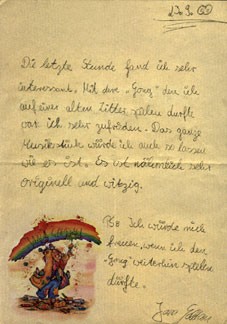 Die letzte Stunde fand ich sehr
interessant. Mit dem „Gong" den ich
auf einer alten Zitter spielen durfte
war ich sehr zufrieden. Das ganze
Musikstück würde ich auch so lassen
wie es ist. Es ist nähmlich sehr
originell und witzig.
PS: Ich würde mich
freuen, wenn ich den
„Gong" weiterhin spielen
dürfte.